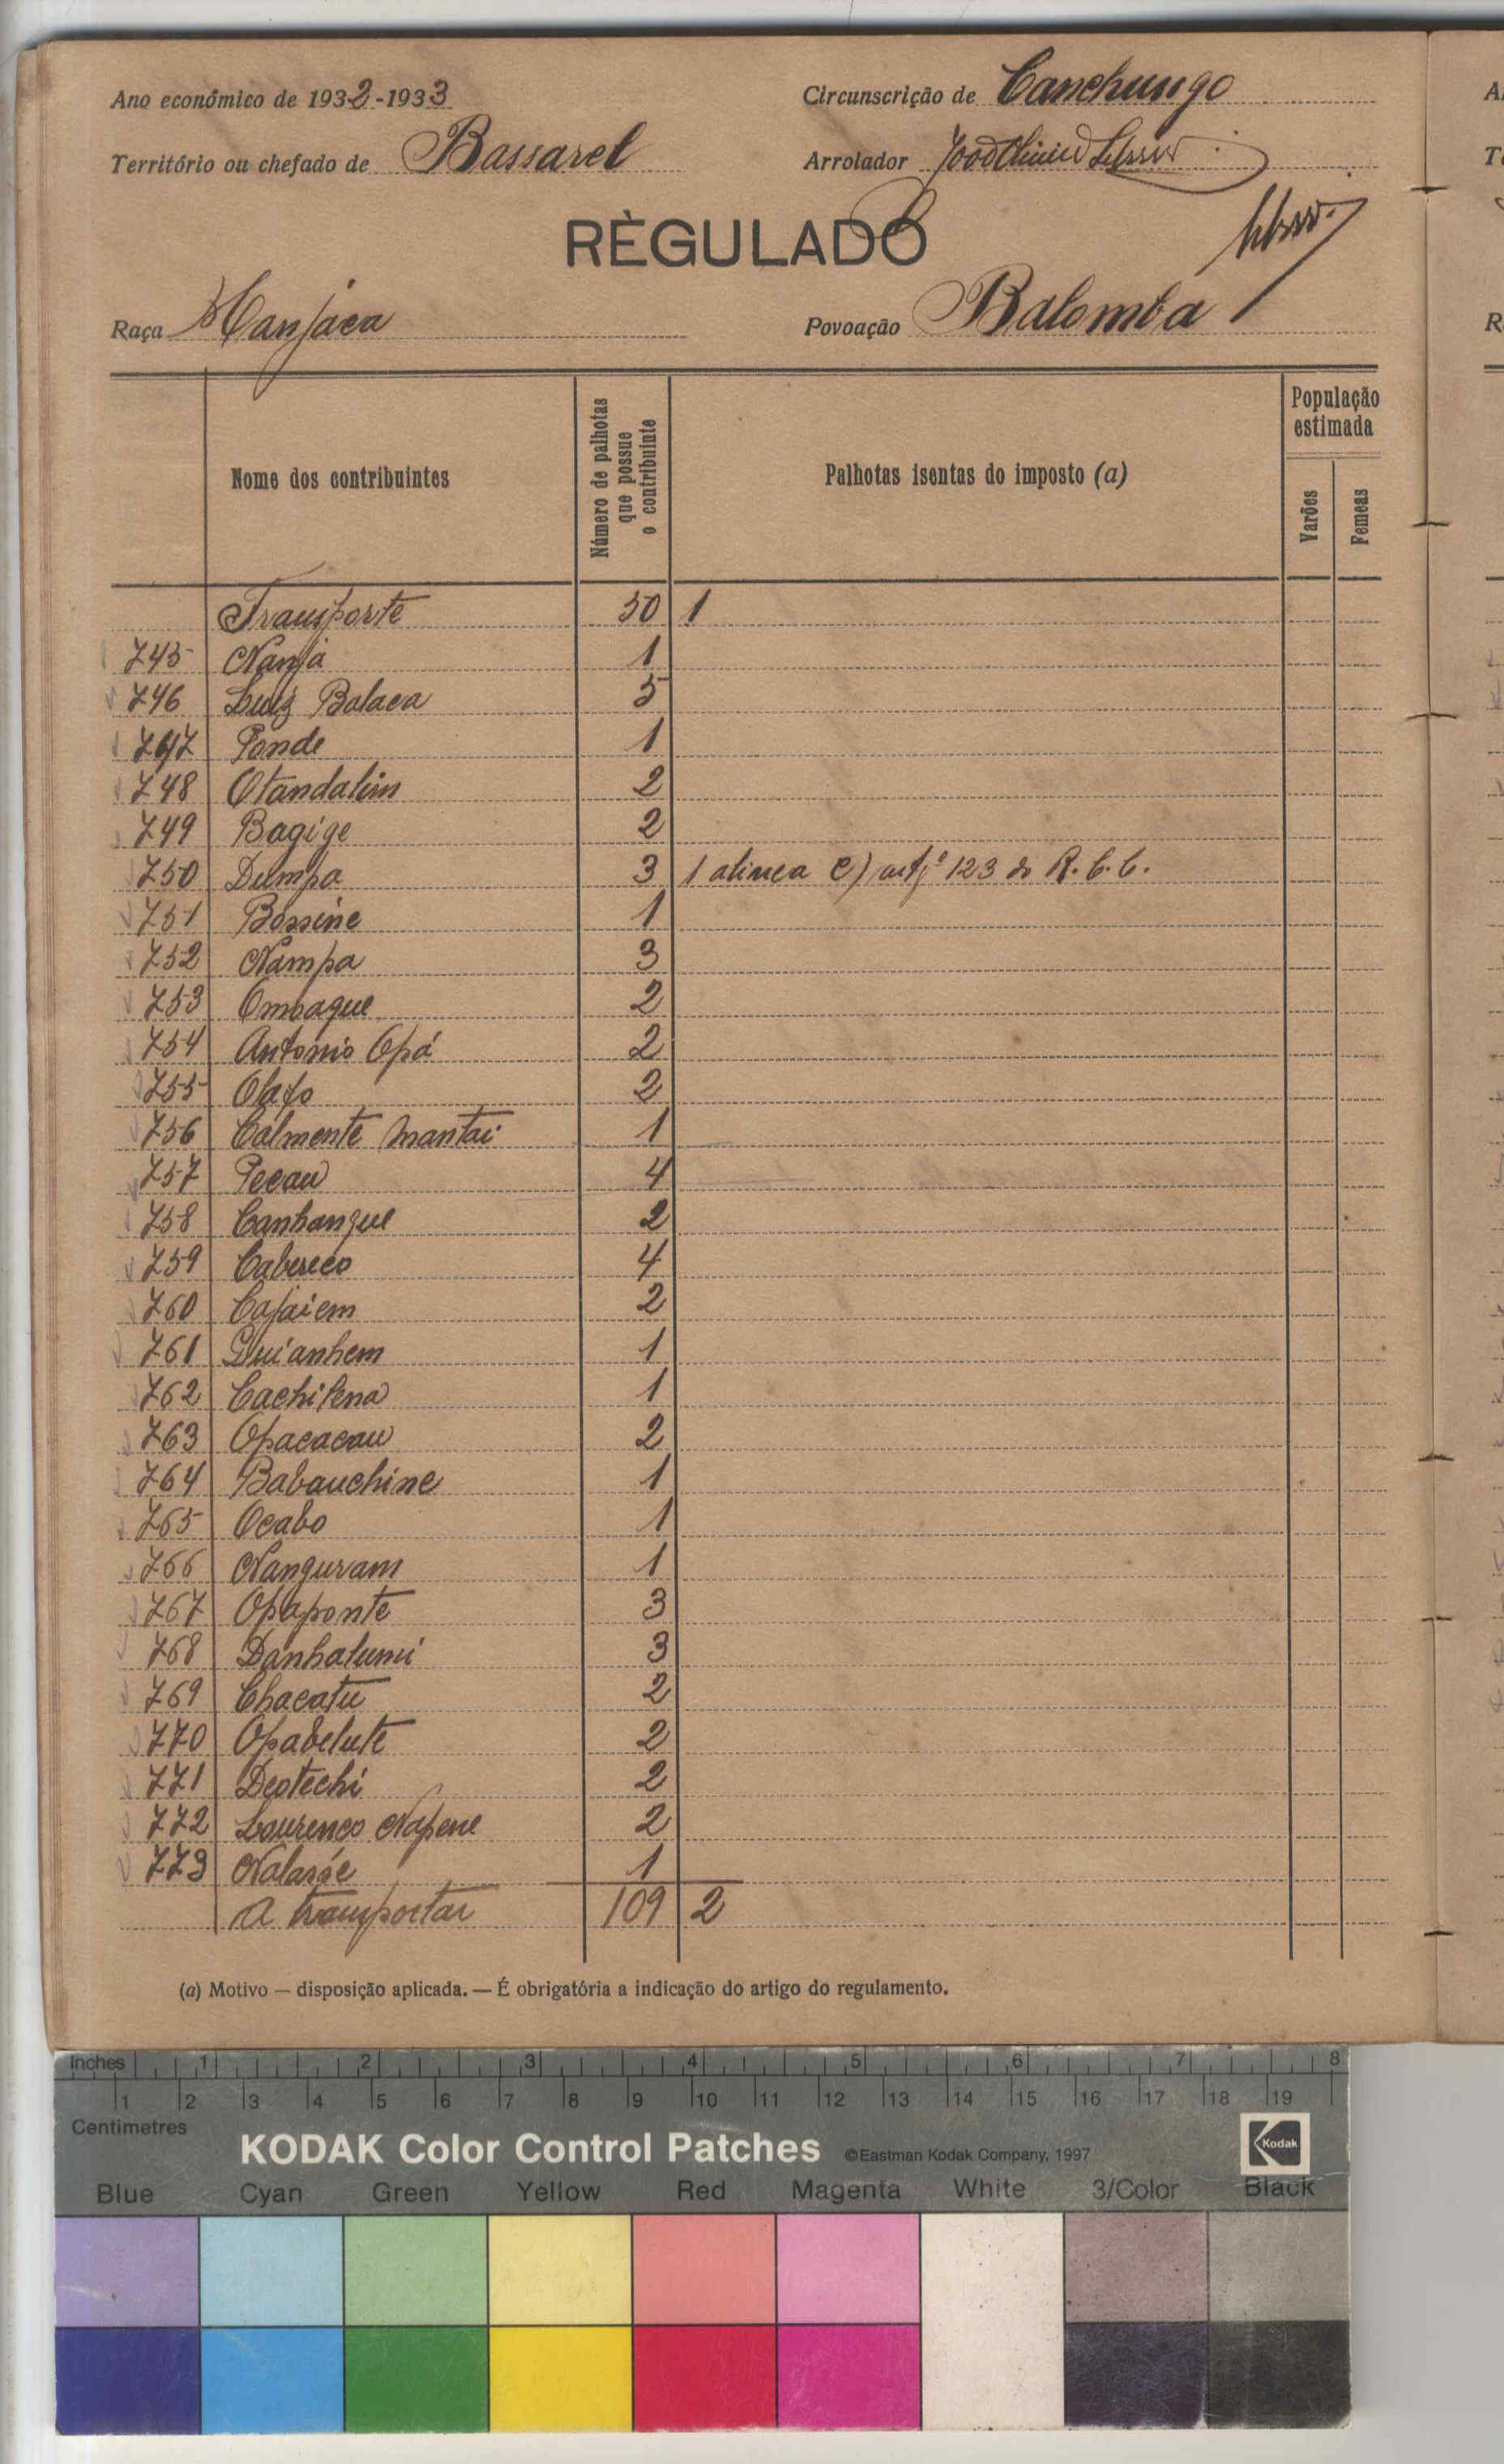 Ano económico de 1932-1933
Circunscrição de Canchungo
Território ou chefado de Bassarel
Arrolador
RÈGULADO
Raça Manjaca
Povoação Balomba
Nome dos contribuintes
Número de palhotas que possue o contribuinte
Palhotas isentas do imposto (a)
População estimada
Varões
Femeas
Transporte 50 1
745 Nanja 1
746 Luiz Balaca 5
747 Ponde 1
748 Otandalim 2
749 Bagige 2
750 Dumpa 3 1 alinea e) artº 123 do R.C.C.
751 Bossine 1
752 Nampa 3
753 Ombaque 2
754 Antonio Opá 2
755 Olafo 2
756 Calmente Mantai 1
757 Pecau 4
758 Canhanque 2
759 Cabereco 4
760 Cajaiem 2
761 Quianhem 1
762 Cachilena 1
763 Opacacau 2
764 Babauchine 1
765 Ocabo 1
766 Nanguram 1
767 Opaponte 3
768 Danhalumi 3
769 Chacatu 2
770 Opabelute 2
771 Deotechi 2
772 Lourenco Napene 2
773 1
A transportar 109 2
(a) Motivo — disposição aplicada. — É obrigatória a indicação do artigo do regulamento.
Inches 1 2 3 4 5 6 7 8
1 2 3 4 5 6 7 8 9 10 11 12 13 14 15 16 17 18 19
Centimetres
KODAK Color Control Patches ©Eastman Kodak Company, 1997 Kodak
Blue Cyan Green Yellow Red Magenta White 3/Color Black